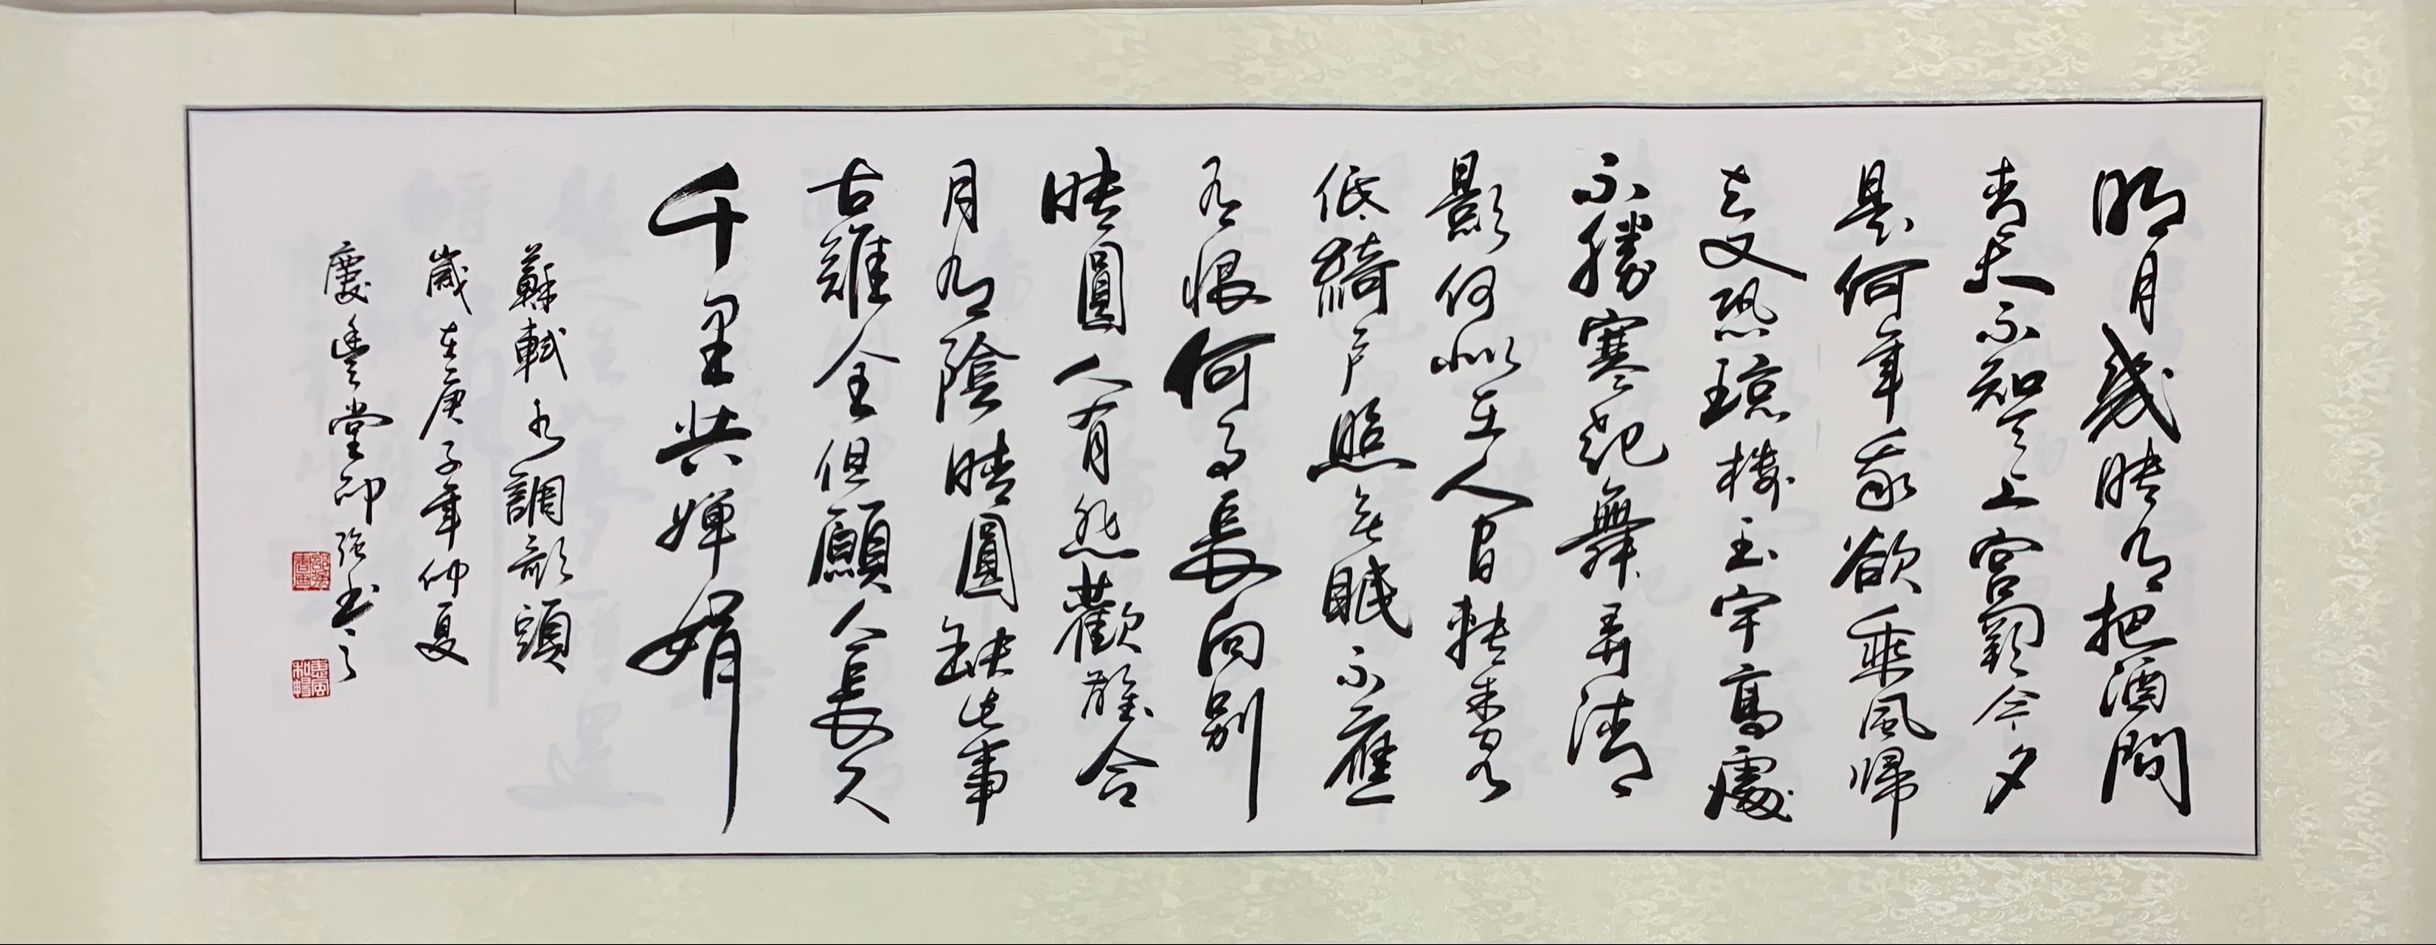 明月幾時有把酒問
青天不知天上宫闕今夕
是何年我欲乘風歸
去又恐瓊樓玉宇高處
不勝寒起舞弄清
影何似在人間轉朱閣
低綺戶照無眠不應
有恨何事長向別
時圓人有悲歡離合
月有陰晴圓缺此事
古難全但願人長久
千里共嬋娟
蘇軾水調歌頭
歲在庚子年仲夏
慶豐堂邵强书之
惠風和暢